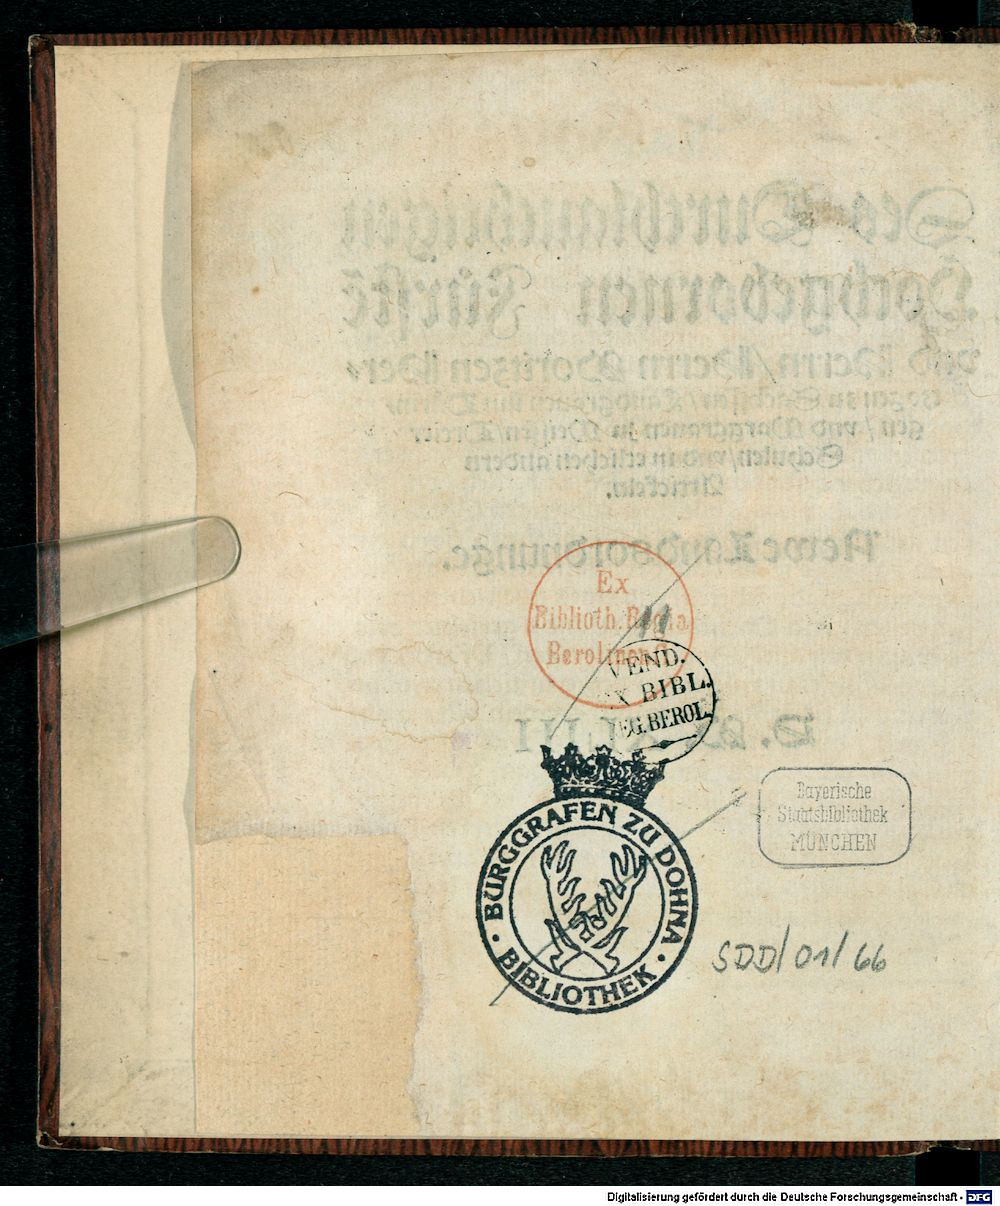 Des Durchlauchtigen
Hochgebornen Fürstē
vnd Herrn / Herrn Moritzen Her-
tzogen zu Sachssen / Landgrauen inn Dürin-
gen / vnd Marggrauen zu Meissen / Dreier
Schulen / vnd in etlichen andern
Artickeln.
Newe Landsordnunge.
Ex
Biblioth. Regia
Berolinen
11
VEND.
EX BIBL.
REG. BEROL.
BURGGRAFEN ZU DOHNA
· BIBLIOTHEK ·
Bayerische
Staatsbibliothek
MÜNCHEN
SDD/01/66
Digitalisierung gefördert durch die Deutsche Forschungsgemeinschaft - DFG